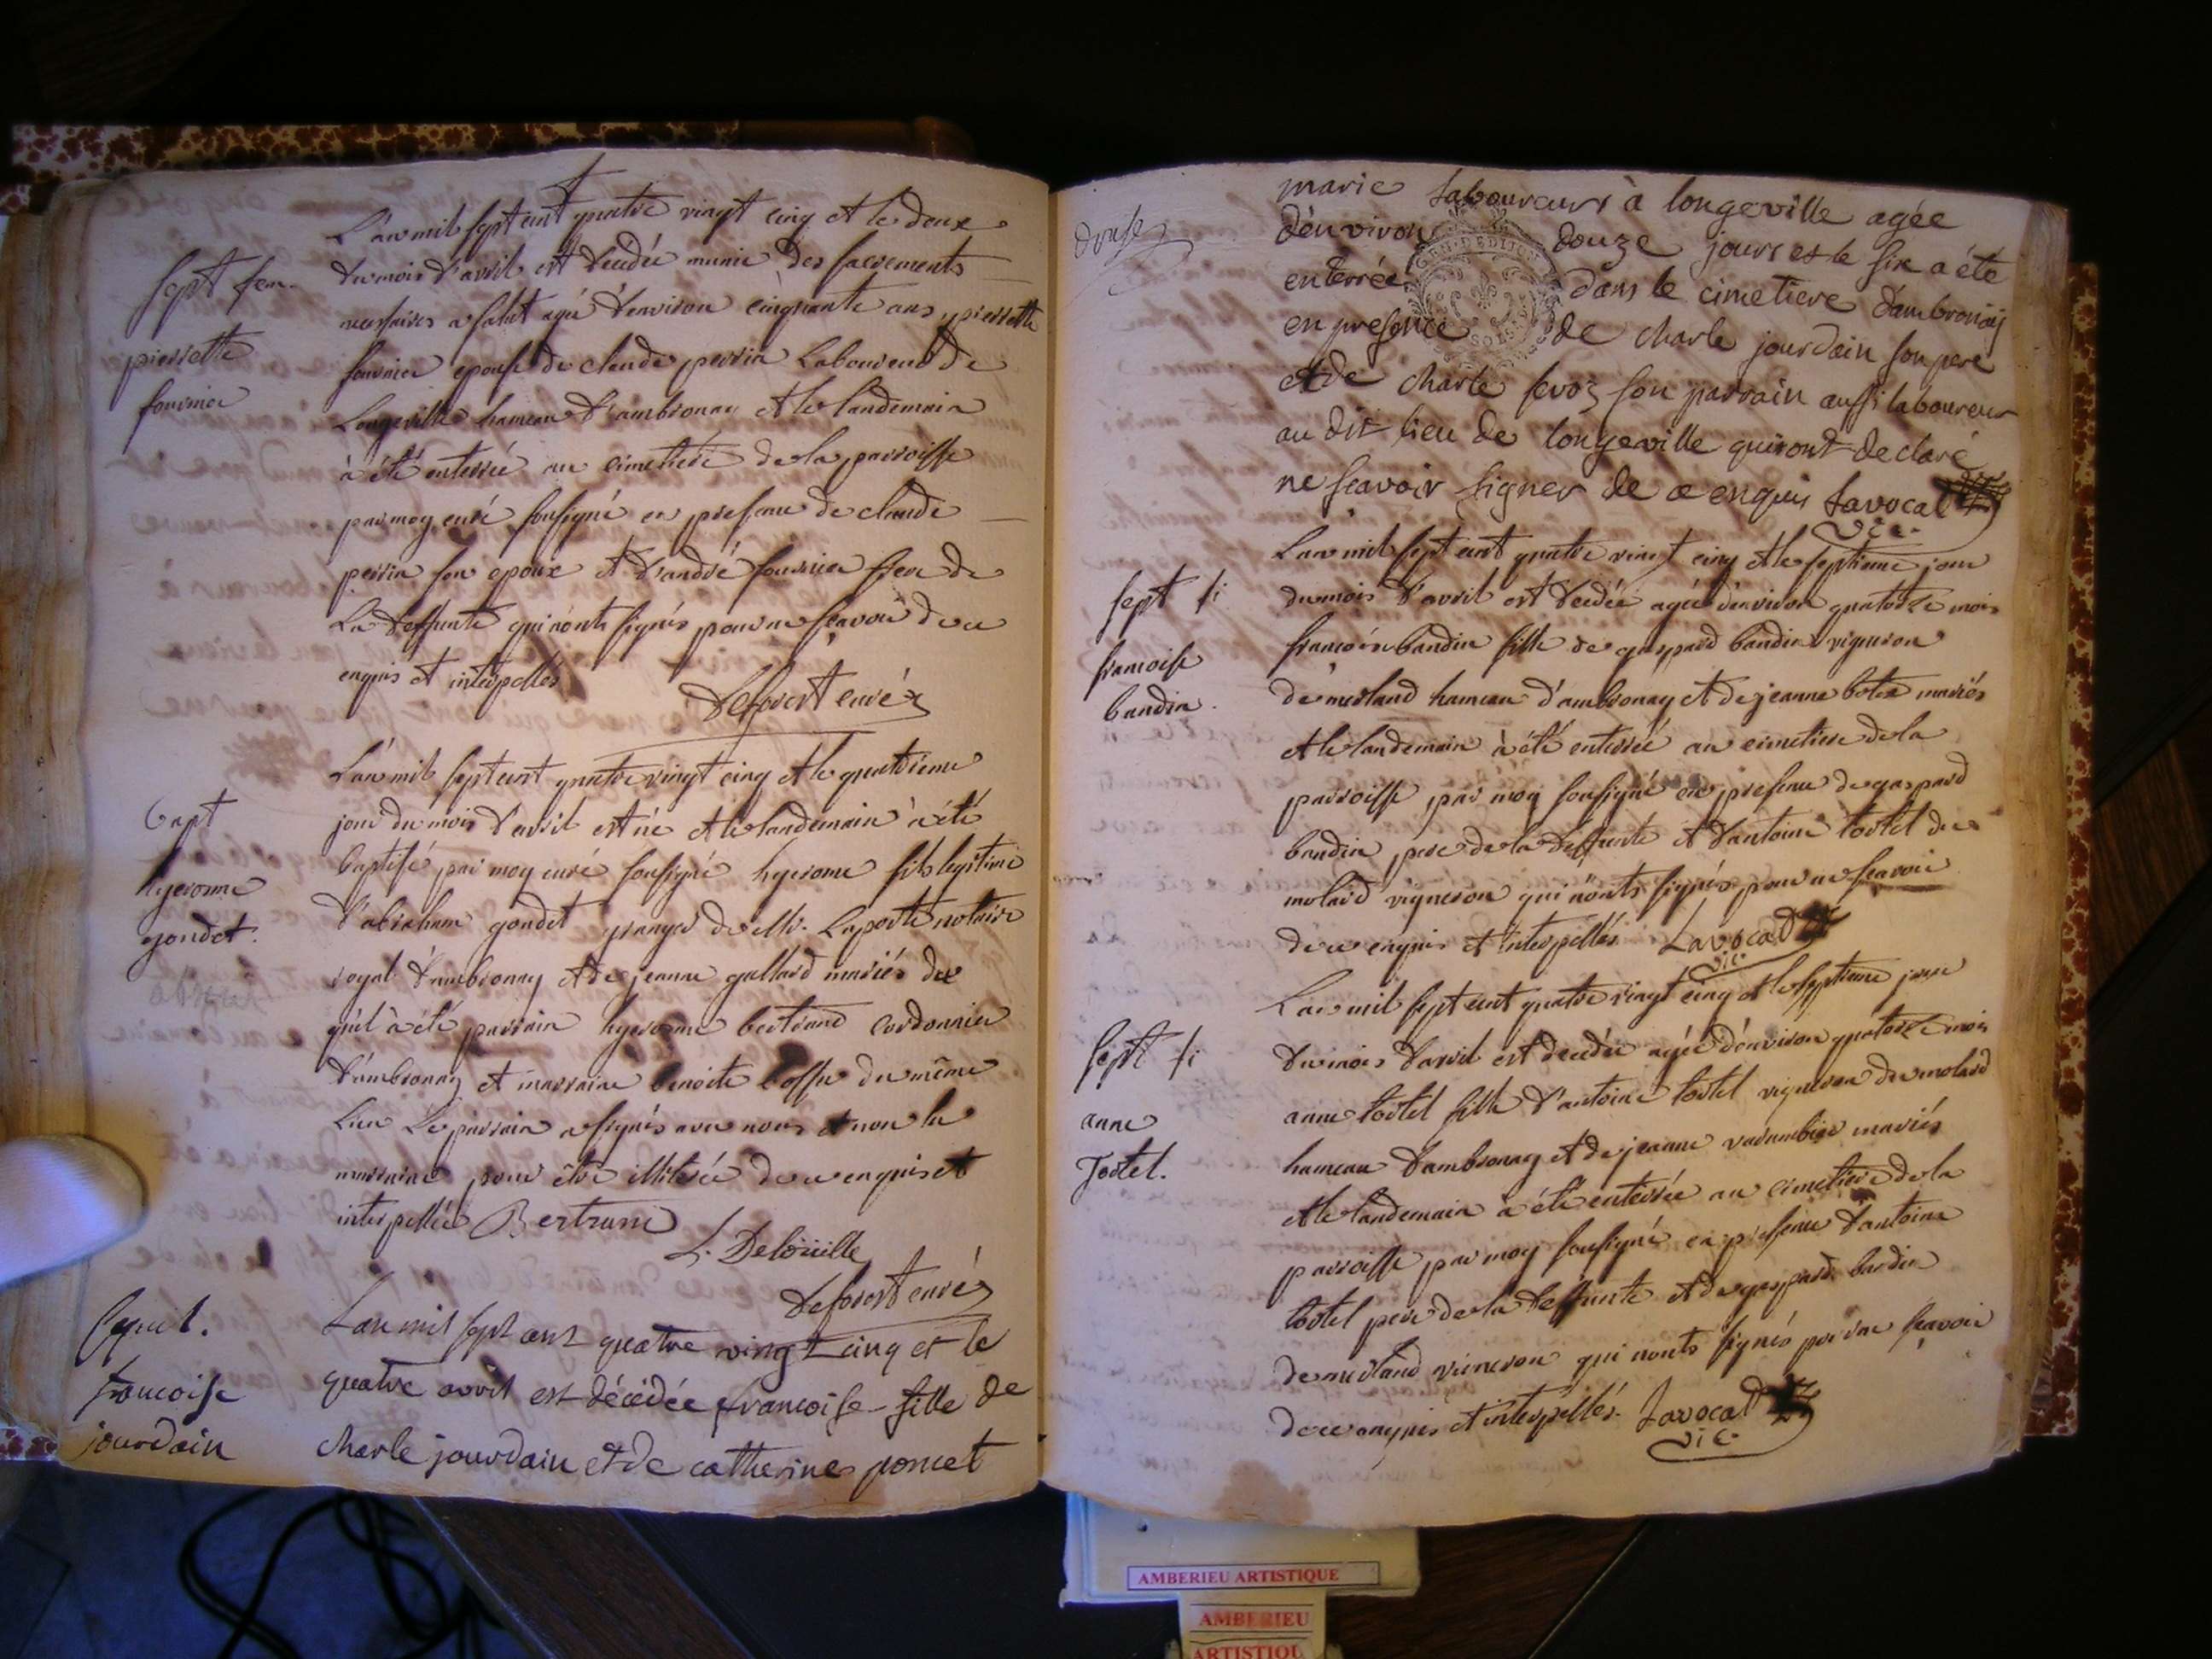 L'an mil sept cent quatre vingt cinq et le deux
du mois d'avril est decedée munie des sacrements
necessaires a salut agée d'environ cinquante ans pierrette
fournier epouse de claude perrin Laboureur de
Longeville hameau d'ambronay et le landemain
à été enterrée au cimetiere de la parroisse
par moy curé soussigné en presence de claude
perrin son epoux et d'andré fournier frere de
La deffunte qui n'onts signés pour ne sçavoir de ce
enquis et interpellés
Deforest curé
sept fem.
pierrette
fournier
L'an mil sept cent quatre vingt cinq et le quatrieme
jour du mois d'avril est né et le landemain à été
baptisé par moy curé soussigné hyerome fils legitime
d'abraham goudet granger de Mr. Laporte notaire
royal d'ambronay et de jeanne gallard mariés du
quil à été parrain hyerosme bertrand cordonnier
d'ambronay et marraine benoite du même
Lieu Le parrain a signés avec nous et non la
marraine pour être illiterée de ce enquis et
interpellée Bertrand
L. Deloüille
Deforest curé
bapt
hyerome
goudet.
L'an mil sept cent quatre vingt cinq et le
quatre avril est décédée francoise fille de
charle jourdain et de catherine poncet
sepult.
francoise
jourdain
marie laboureurs à longeville agée
d'environ douze jours et le six a été
enterrée dans le cimetiere d'ambronay
en presence de charle jourdain son pere
et de charle sevoz son parrain aussi laboureur
au dit lieu de longeville qui n'ont declaré
ne sçavoir signer de ce enquis Lavocat
vic.
douse
L'an mil sept cent quatre vingt cinq et le septieme jour
du mois d'avril est decedée agée d'environ quatorze mois
francoise bandin fille de gaspard bandin vigneron
de merland hameau d'ambronay et de jeanne botex mariés
et le landemain à été enterrée au cimetiere de la
parroisse par moy soussigné en presence de gaspard
bandin pere de la deffunte et d'antoine tortel du
molard vigneron qui n'onts signés pour ne sçavoir
de ce enquis et interpellés. Lavocat
vic.
sept fi
francoise
bandin.
L'an mil sept cent quatre vingt cinq et le septieme jour
du mois d'avril est decedée agée d'environ quatorze mois
anne tortel fille d'antoine tortel vigneron du molard
hameau d'ambronay et de jeanne mariés
et le landemain à été enterrée au cimetiere de la
parroisse par moy soussigné en presence d'antoine
tortel pere de la deffunte et de gaspard bandin
de merland vigneron qui n'onts signés pour ne sçavoir
de ce enquis et interpellés. Lavocat
vic.
sept fi
anne
Tortel.
AMBERIEU ARTISTIQUE
AMBERIEU
ARTISTIQU